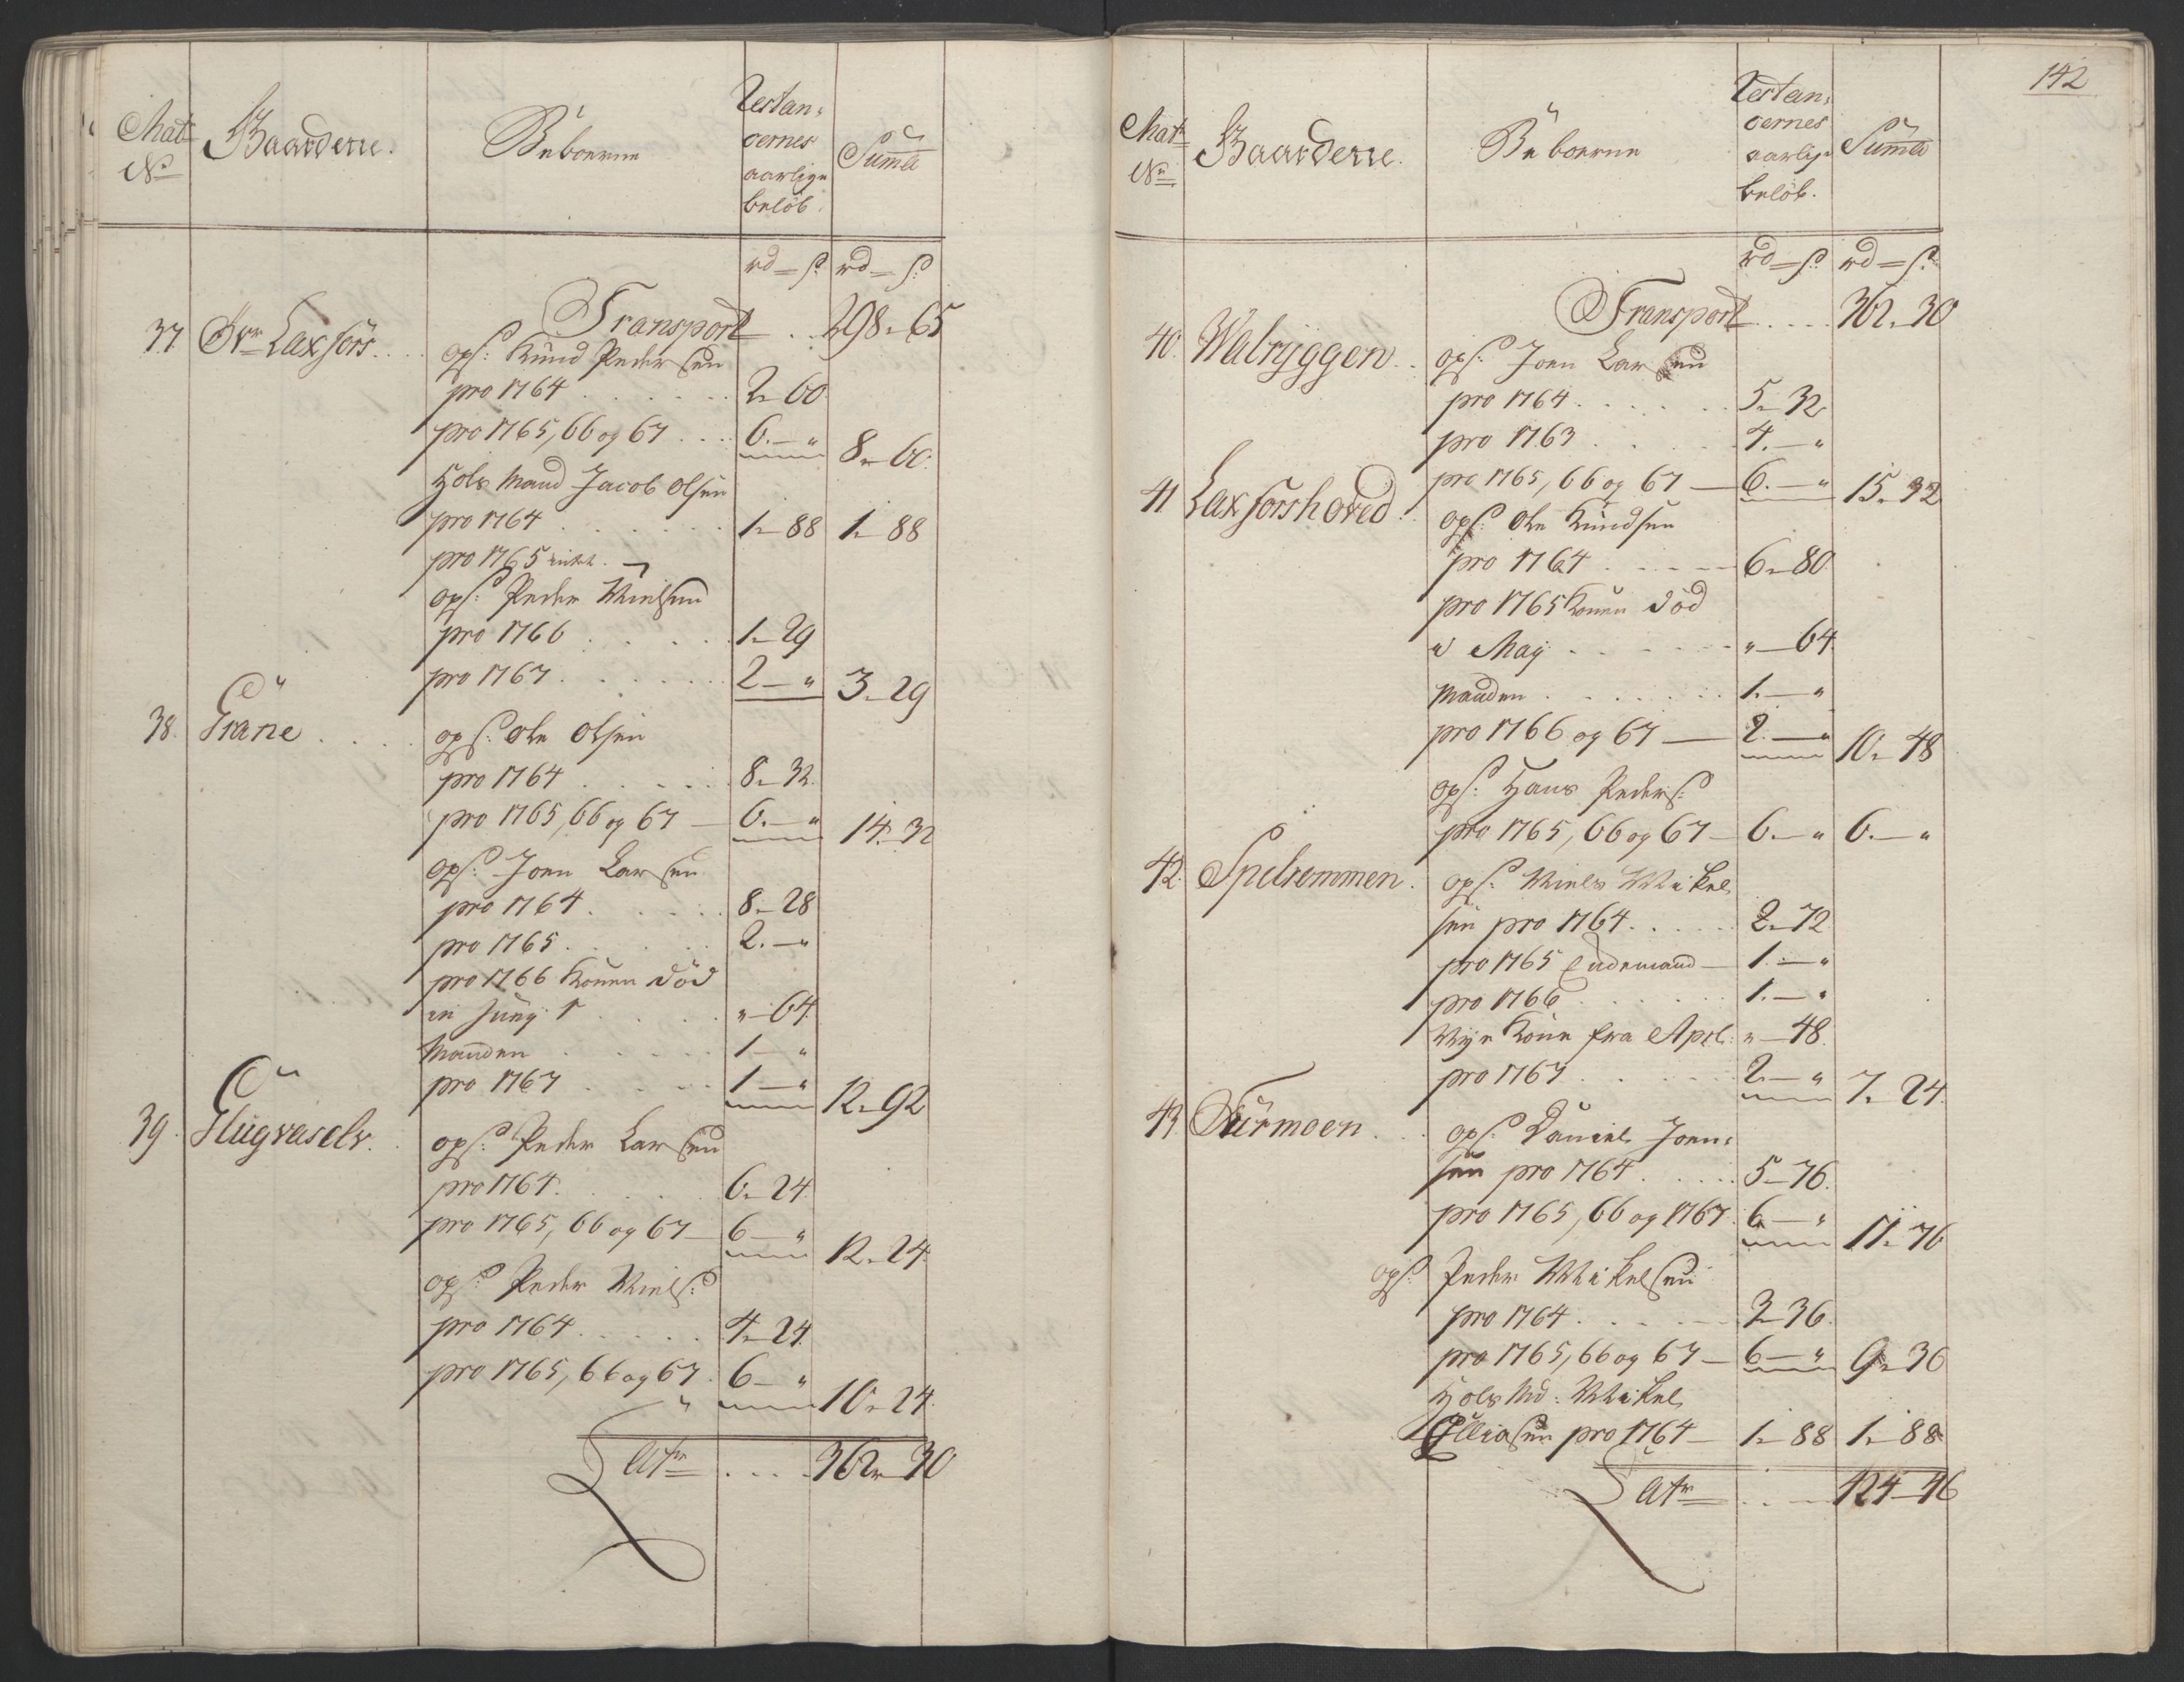 Mat:
No
Gaarderne.
Beboerne
Restan-
cernes
aarlige
beløb.
Summa
rd - s: rd - s:
Transport . . 298 - 65
37. Øvr Laxfors . . ops: Knud Pedersen
pro 1764 . . . . . 2 - 60
pro 1765, 66 og 67 . . . 6. - " 8 - 60.
Hols Mand Jacob Olsen
pro 1764 . . . . . 1 - 88 1 - 88
pro 1765 intet.
ops: Peder Nielsen
pro 1766 . . . . . 1 - 29
pro 1767 . . . . . 2 - " 3 - 29
38. Grane . . . ops: Ole Olsen
pro 1764 . . . . . 8 - 32
pro 1765, 66 og 67 - 6. - " 14. - 32
ops: Joen Larsen
pro 1764 . . . . . 8 - 28
pro 1765 . . . . . 2. - "
pro 1766 Konen død
in Junij . . . . " - 64.
Manden . . . . . 1 - "
pro 1767 . . . . . 1 - " 12 - 92
39. Flugvaselv. ops: Peder Larsen
pro 1764. . . . . 6 - 24
pro 1765, 66 og 67 - 6 - " 12 - 24.
ops: Peder Niels:
pro 1764 . . . . . 4 - 24.
pro 1765, 66 og 67. 6 - " 10 - 24.
Latr . . . 362 - 30
142
Mat:
No
Gaarderne.
Beboerne
Restan-
cernes
aarlige
beløb.
Summa
rd - s: rd - s:
Transport . . . . 362 - 30
40. Walryggen . . ops: Joen Larsen
pro 1764 . . . . . 5 - 32
pro 1763 . . . . . 4. - "
pro 1765, 66 og 67 - 6. - " 15 - 32
41 Laxforshoved . ops: Ole Knudsen
pro 1764 . . . . . 6 - 80.
pro 1765 Konen død
i Maij . . . . . " - 64
Manden . . . . . 1. - "
pro 1766 og 67 - 2. - " 10 - 48
ops: Hans Peders:
pro 1765, 66 og 67 - 6. - " 6. - "
42. Spelremmen . ops: Niels Mikel
sen pro 1764 . . . . 2 - 72
pro 1765 Enkemand - 1. - "
pro 1766 . . . . . 1. - "
Nye Kone fra Apri: " - 48.
pro 1767 . . . . . 2. - " 7 - 24.
43. Turmoen . . . ops: Daniel Joen-
sen pro 1764 . . . . 5 - 76.
pro 1765, 66 og 1767 6 - " 11 - 76
ops: Peder Mikelsen
pro 1764 . . . . . 3 - 36.
pro 1765, 66 og 67 - 6 - " 9 - 36
Hols Md: Mikel
Elliasen pro 1764 - 1 - 88 1 - 88
Latr . . . 424 - 46